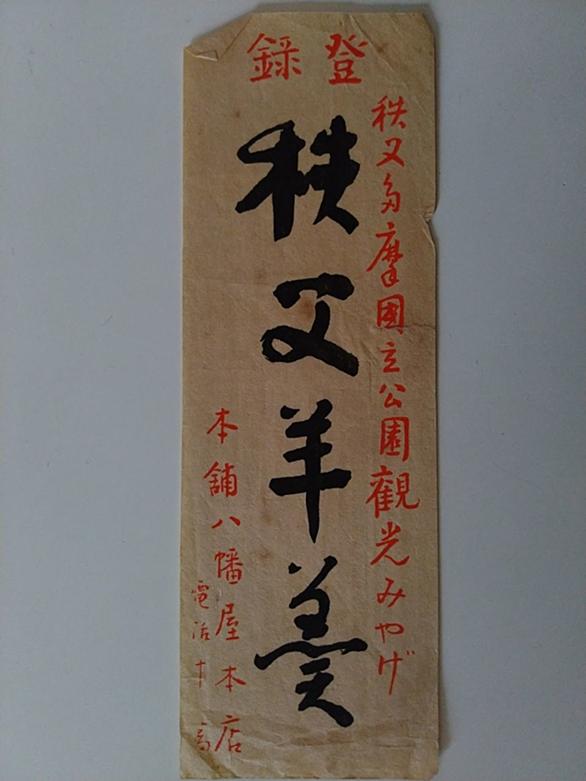 登錄
秩父多摩國立公園觀光みやげ
秩父羊羹
本舖八幡屋本店
電話十